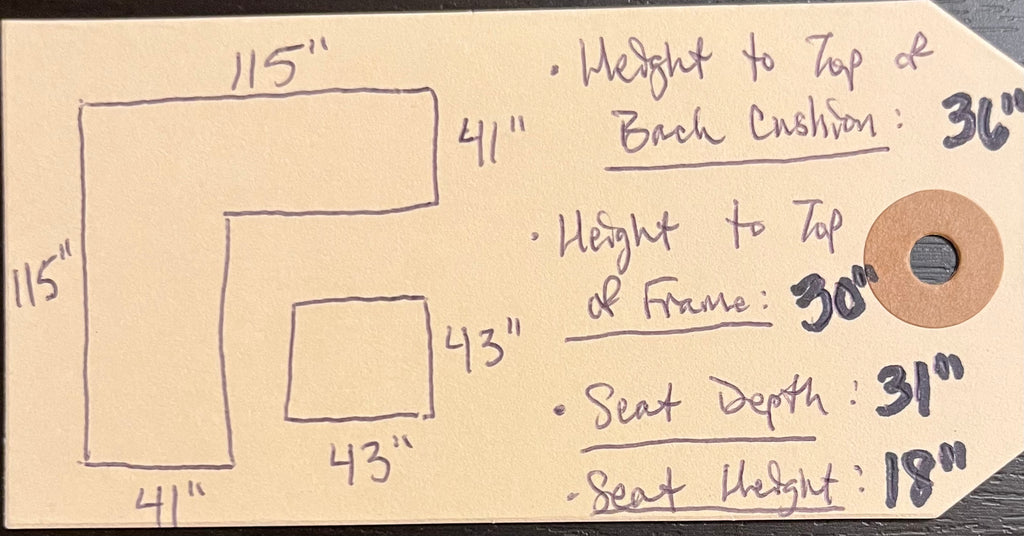 115"
41"
115"
43"
43"
41"
• Height to Top of
Back Cushion: 36"
• Height to Top
of Frame: 30"
• Seat Depth: 31"
• Seat Height: 18"